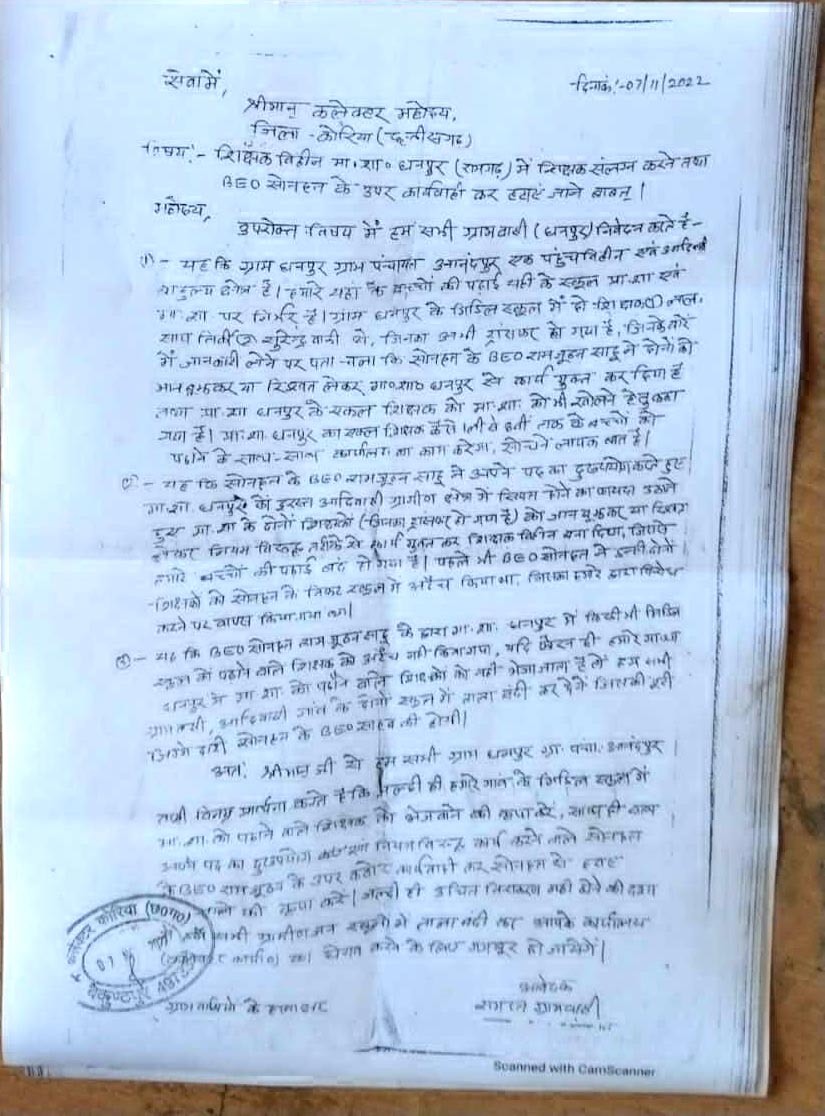 सेवा में,
दिनांक:-07/11/2022
श्रीमान् कलेक्टर महोदय,
जिला - कोरिया (छत्तीसगढ़)
विषय:- शिक्षक विहीन मा॰शा॰ धनपुर (रामगढ़) में शिक्षक संलग्न करने तथा
BEO सोनहत के उपर कार्यवाही कर हटाएं जाने बाबत् |
महोदय,
उपरोक्त विषय में हम सभी ग्रामवासी (धनपुर) निवेदन करते है-
(1) - यह कि ग्राम धनपुर ग्राम पंचायत आनंदपुर एक पहुंचविहीन एवं आदिवासी
बाहुल्य क्षेत्र है। हमारे यहां के बच्चों की पढ़ाई यही के स्कूल प्रा.शा एवं
मा.शा पर निर्भर है। ग्राम धनपुर के मिडिल स्कूल में दो शिक्षक (1)
(2) सुरेन्द्र थे, जिनका अभी ट्रांसफर हो गया है, जिनके बारे
में जानकारी लेने पर पता चला कि सोनहत के BEO साहू ने दोनों को
जानबुझकर या रिश्वत लेकर मा॰शा॰ धनपुर से कार्य मुक्त कर दिया है
तथा प्रा.शा धनपुर के एकल शिक्षक को मा.शा. को भी खोलने हेतु कहा
गया है। प्रा.शा. धनपुर का एकल शिक्षक कैसे 1ली से 8वीं तक के बच्चों को
पढ़ाने के साथ-साथ कार्यालय का काम करेगा, सोचने लायक बात है।
(2) - यह कि सोनहत के BEO साहू ने अपने पद का दुरुपयोग करते हुए
मा.शा. धनपुर को आदिवासी ग्रामीण क्षेत्र में स्थित होने का फायदा उठाते
हुए मा.शा के दोनों शिक्षकों (जिनका ट्रांसफर हो गया है) को जान बुझकर या रिश्वत
लेकर नियम विरूद्ध तरीके से कार्य मुक्त कर शिक्षक विहीन बना दिया, जिससे
हमारे बच्चों की पढ़ाई बंद हो गया है। पहले भी BEO सोनहत ने इन्ही दोनों
शिक्षकों को सोनहत के निकट स्कूल में अटैच किया था, जिसका हमारे द्वारा विरोध
करने पर वापस किया गया था।
(3) - यह कि BEO सोनहत साहू के द्वारा मा.शा. धनपुर में किसी भी मिडिल
स्कूल को पढ़ाने वाले शिक्षक को अटैच नही किया गया, यदि हमारे
धनपुर में मा.शा. को पढ़ाने वाले शिक्षकों को नही भेजा जाता है तो हम सभी
ग्रामवासी, आदिवासी गांव के दोनों स्कूल में ताला बंदी कर देंगे जिसकी पूरी
सोनहत के BEO साहब की होगी।
अतः श्रीमान् जी से हम सभी ग्राम धनपुर ग्रा. पंचा. आनंदपुर
विनम्र प्रार्थना करते है कि जल्दी ही हमारे गांव के मिडिल स्कूल में
मा.शा. को पढ़ाने वाले शिक्षक को भेजवाने की कृपा करें, साथ ही साथ
अपने पद का दुरुपयोग कर नियम विरुद्ध कार्य करने वाले सोनहत
के BEO के उपर कठोर कार्यवाही कर सोनहत से हटाए
जाने की कृपा करें। जल्दी ही उचित निराकरण नही होने की दशा
सभी ग्रामीणजन स्कूलों में ताला बंदी कर आपके कार्यालय
का घेराव करने के लिए मजबूर हो जायेंगे।
कलेक्टर कोरिया
आवेदक
ग्रामवासियों के हस्ताक्षर
समस्त ग्रामवासी
Scanned with CamScanner